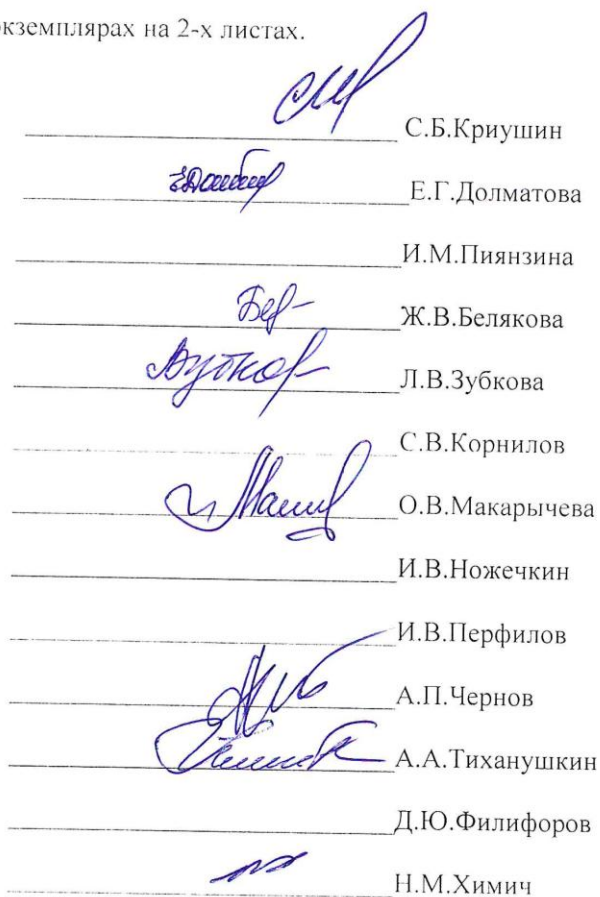 экземплярах на 2-х листах.
С.Б.Криушин
Е.Г.Долматова
И.М.Пиянзина
Ж.В.Белякова
Л.В.Зубкова
С.В.Корнилов
О.В.Макарычева
И.В.Ножечкин
И.В.Перфилов
А.П.Чернов
А.А.Тиханушкин
Д.Ю.Филифоров
Н.М.Химич